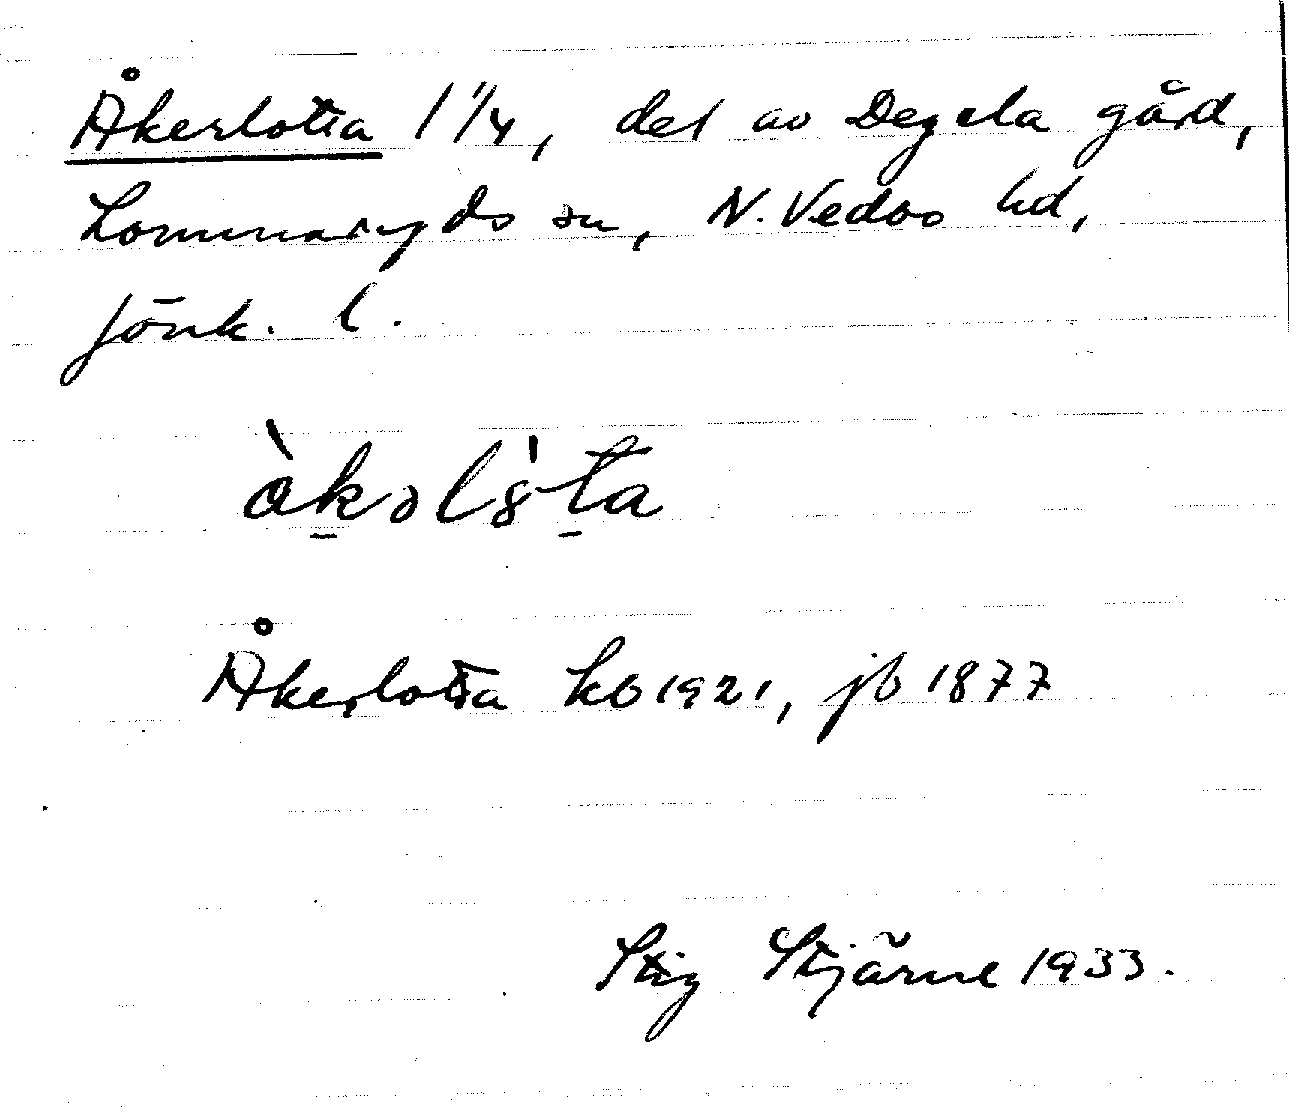 Åkerlotta 1 1/4, del av Degla gård,
Lommaryds sn, N. Vedbo hd,
Jönk. l.
Åkerlotta kb 1921, jb 1877
Stig Stjärne 1933.